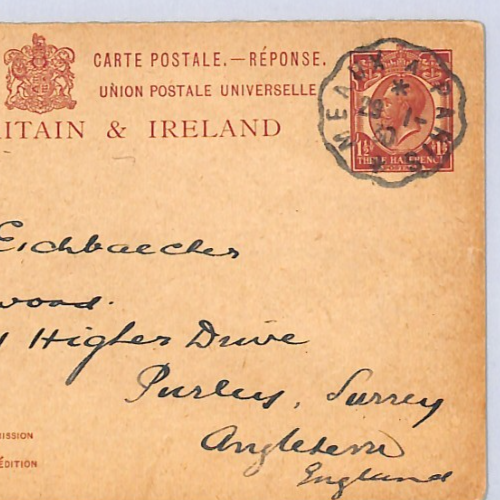 CARTE POSTALE.—RÉPONSE.
UNION POSTALE UNIVERSELLE
ITAIN & IRELAND
MEAUX A PARIS
29
THREE HALFPENCE
Eichbaecher
wood.
1 Higher Drive
Purley, Surrey
Angleterre
England
ISSION
ÉDITION